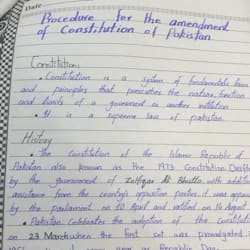 Date
Procedure for the amendment
of Constitution of Pakistan.
Constitution:
• Constitution is a system of fundamental laws
and principles that prescribes the nature, function
and limits of a government or another institution
• It is a supreme law of pakistan.
History
• The constitution of the Islamic Republic of
Pakistan also known as the 1973 Constitution Drafted
by the government of Zulfiqar Ali Bhutto, with addition
assistance from the country's opposition parties, it was approved
by the parliament on 10 April and ratified on 14 August
• Pakistan celebrates the adoption of the Constitution
23 March when the first set was promulgated
as Republic Day